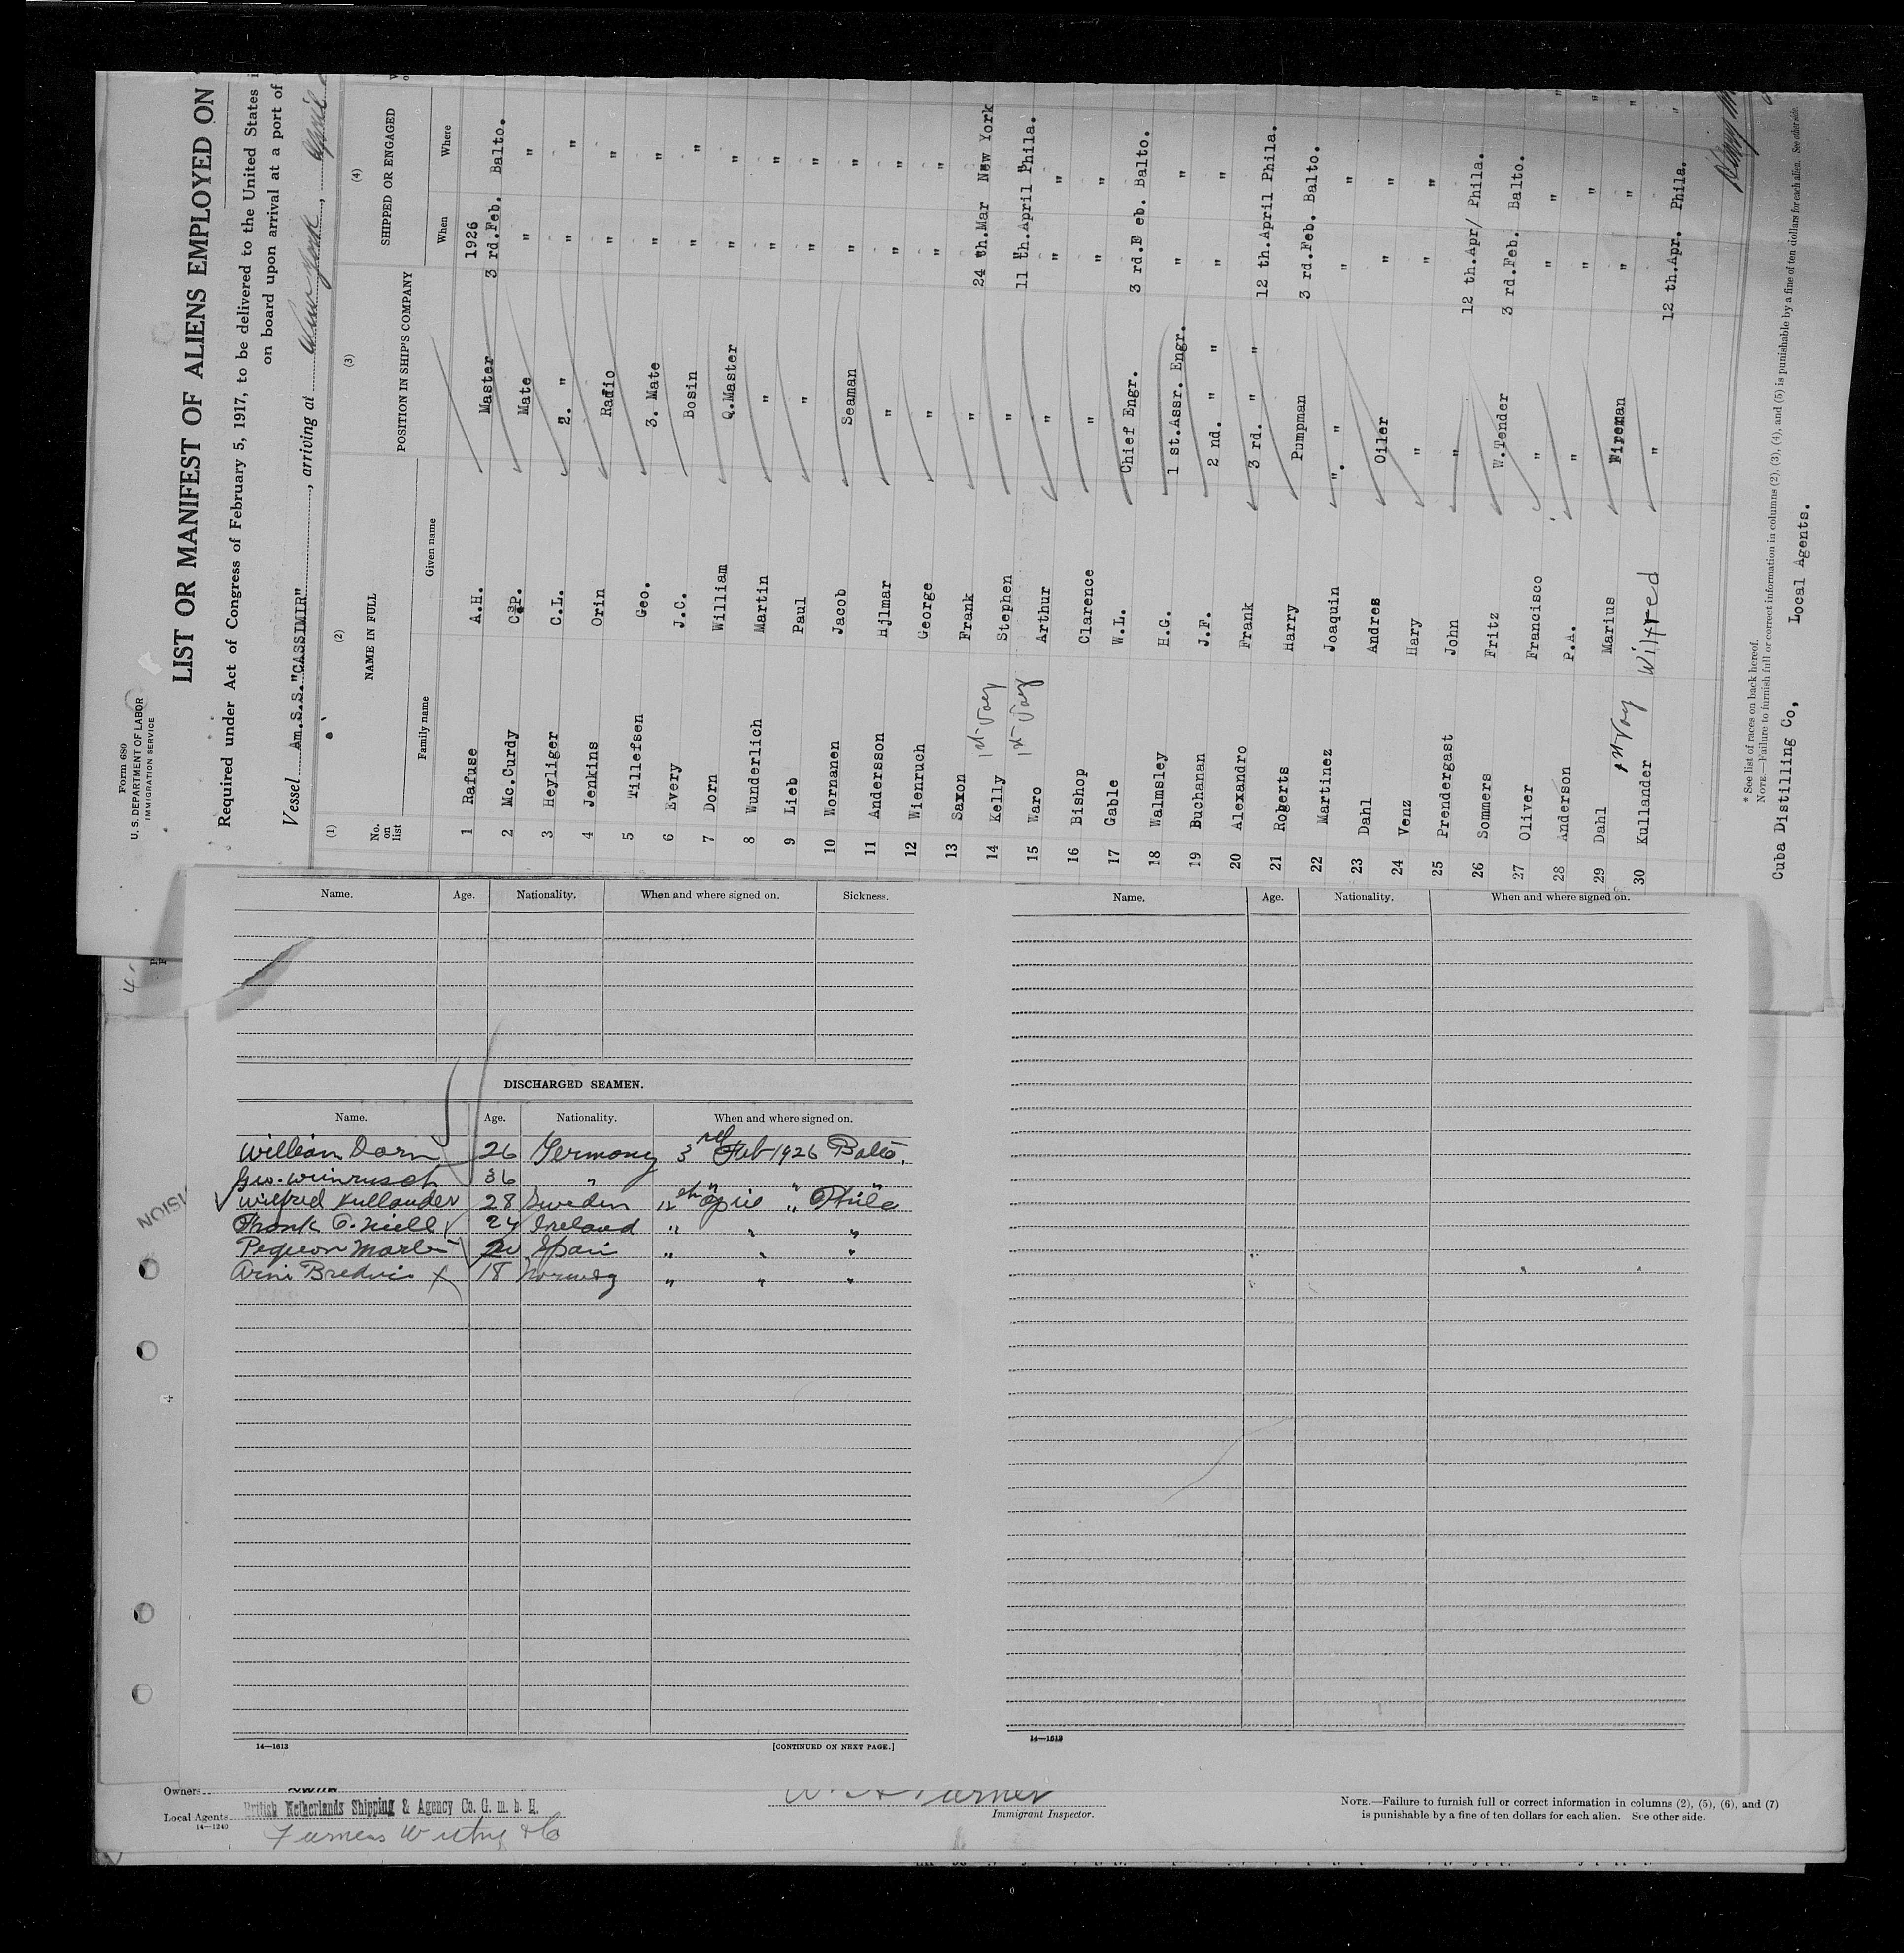 Form 680
U. S. DEPARTMENT OF LABOR
IMMIGRATION SERVICE
LIST OR MANIFEST OF ALIENS EMPLOYED ON
Required under Act of Congress of February 5, 1917, to be delivered to the United States
on board upon arrival at a port of
Vessel Am.S.S."CASSIMIR", arriving at New York, April
(1) (2) (3) (4)
No. on list NAME IN FULL POSITION IN SHIP'S COMPANY SHIPPED OR ENGAGED
Family name Given name When Where
1926
1 Rafuse A.H. Master 3 rd.Feb. Balto.
2 Mc.Curdy C.P. Mate " "
3 Heyliger C.L. 2. " " "
4 Jenkins Orin Radio " "
5 Tillefsen Geo. 3. Mate " "
6 Every J.C. Bosin " "
7 Dorn William Q.Master " "
8 Wunderlich Martin " " "
9 Lieb Paul " " "
10 Wornanen Jacob Seaman " "
11 Andersson Hjlmar " " "
12 Wienruch George " " "
13 Saxon Frank " 24 th.Mar New York
14 Kelly 1st Voy Stephen " 11 th.April Phila.
15 Waro 1st Voy Arthur " " "
16 Bishop Clarence " " "
17 Gable W.L. Chief Engr. 3 rd.F eb. Balto.
18 Walmsley H.G. 1 st.Assr. Engr. " "
19 Buchanan J.F. 2 nd. " " " "
20 Alexandro Frank 3 rd. " " 12 th.April Phila.
21 Roberts Harry Pumpman 3 rd.Feb. Balto.
22 Martinez Joaquin ". " " "
23 Dahl Andres Oiler " "
24 Venz Hary " " "
25 Prendergast John " 12 th.Apr/ Phila.
26 Sommers Fritz W.Tender 3 rd.Feb. Balto.
27 Oliver Francisco " " "
28 Anderson P.A. " " "
29 Dahl Marius Fireman " "
30 Kullander 1st Voy Wilfred " 12 th.Apr. Phila.
* See list of races on back hereof.
NOTE.—Failure to furnish full or correct information in columns (2), (3), (4), and (5) is punishable by a fine of ten dollars for each alien. See other side.
Cuba Distilling Co, Local Agents.
Name. Age. Nationality. When and where signed on. Sickness.
Name. Age. Nationality. When and where signed on.
DISCHARGED SEAMEN.
Name. Age. Nationality. When and where signed on.
William Dorn 26 Germany 3 rd Feb 1926 Balto.
Geo. Winrusch 36 " " " "
Wilfred Kullander 28 Sweden 12 th April " Phila
Frank O. Niell 24 Ireland " " "
20 Spain " " "
18 Norway " " "
14—1613
[CONTINUED ON NEXT PAGE.]
14—1613
Owners
Local Agents British Netherlands Shipping & Agency Co. G. m. b. H.
14—1240
Furness Withy & Co
Turner
Immigrant Inspector.
NOTE.—Failure to furnish full or correct information in columns (2), (5), (6), and (7)
is punishable by a fine of ten dollars for each alien. See other side.